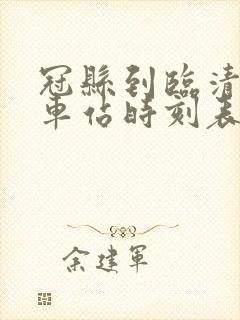 冠縣到臨清
車佔時刻表
余建軍